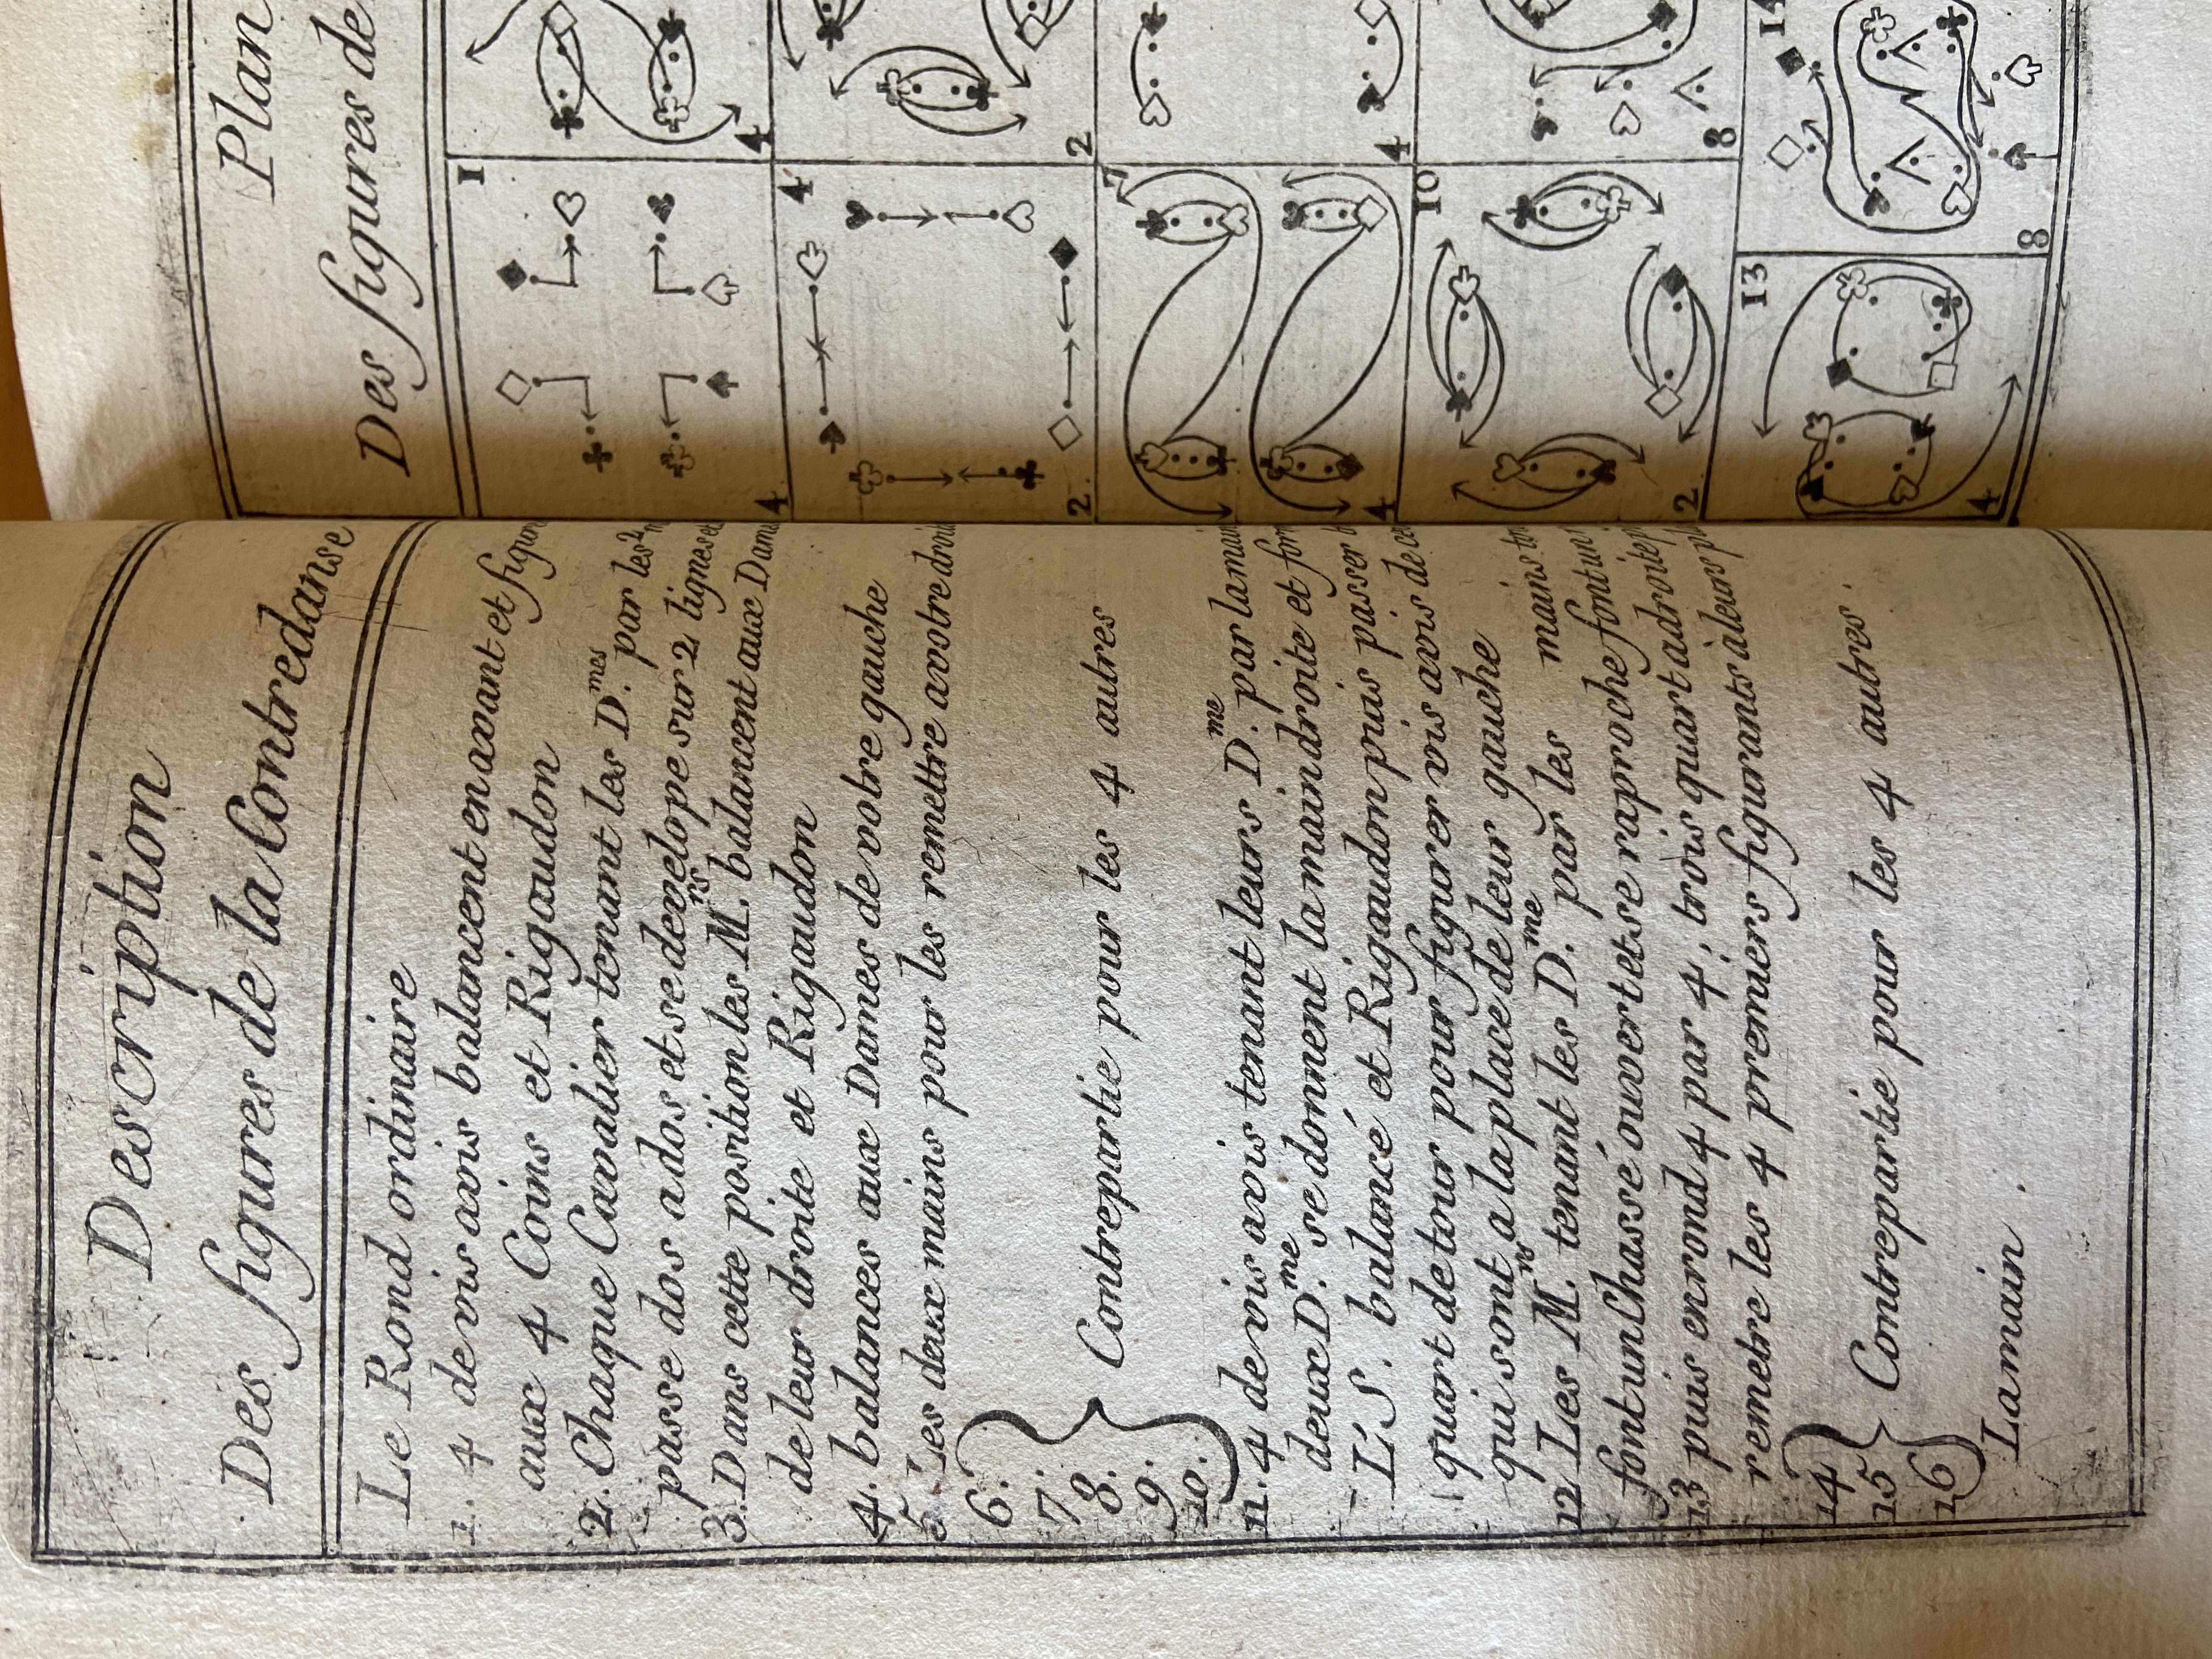 Description
Des figures de la Contredanse
Le Rond ordinaire
1. 4 de vis avis balancent en avant et
aux 4 Coins et Rigaudon
2. Chaque Cavalier tenant les D.mes par les 2
passe dos a dos et se develope sur 2 lignes
3. Dans cette position les M.rs balancent aux
de leur droite et Rigaudon
4. balances aux Dames de votre gauche
5. Les deux mains pour les remettre avotre
6.
7.
8. Contrepartie pour les 4 autres
9.
10.
11. 4 de vis avis tenant leurs D.me par la
deux D.me se donnent la main droite et
L'S. balancé et Rigaudon puis passer
quart de tour pour figurer vis avis de
qui sont a la place de leur gauche
12 Les M.rs tenant les D.me par les mains
font un Chassé ouvert et se raproche font un
13 puis en rond 4 par 4, trois quart adroite
remetre les 4 premiers figurants à leurs
14
15 Contrepartie pour les 4 autres.
16
La main.
Plan
Des figures de
1
4
4
4
2
2
7
4
4
10
2
8
13
4
14
8